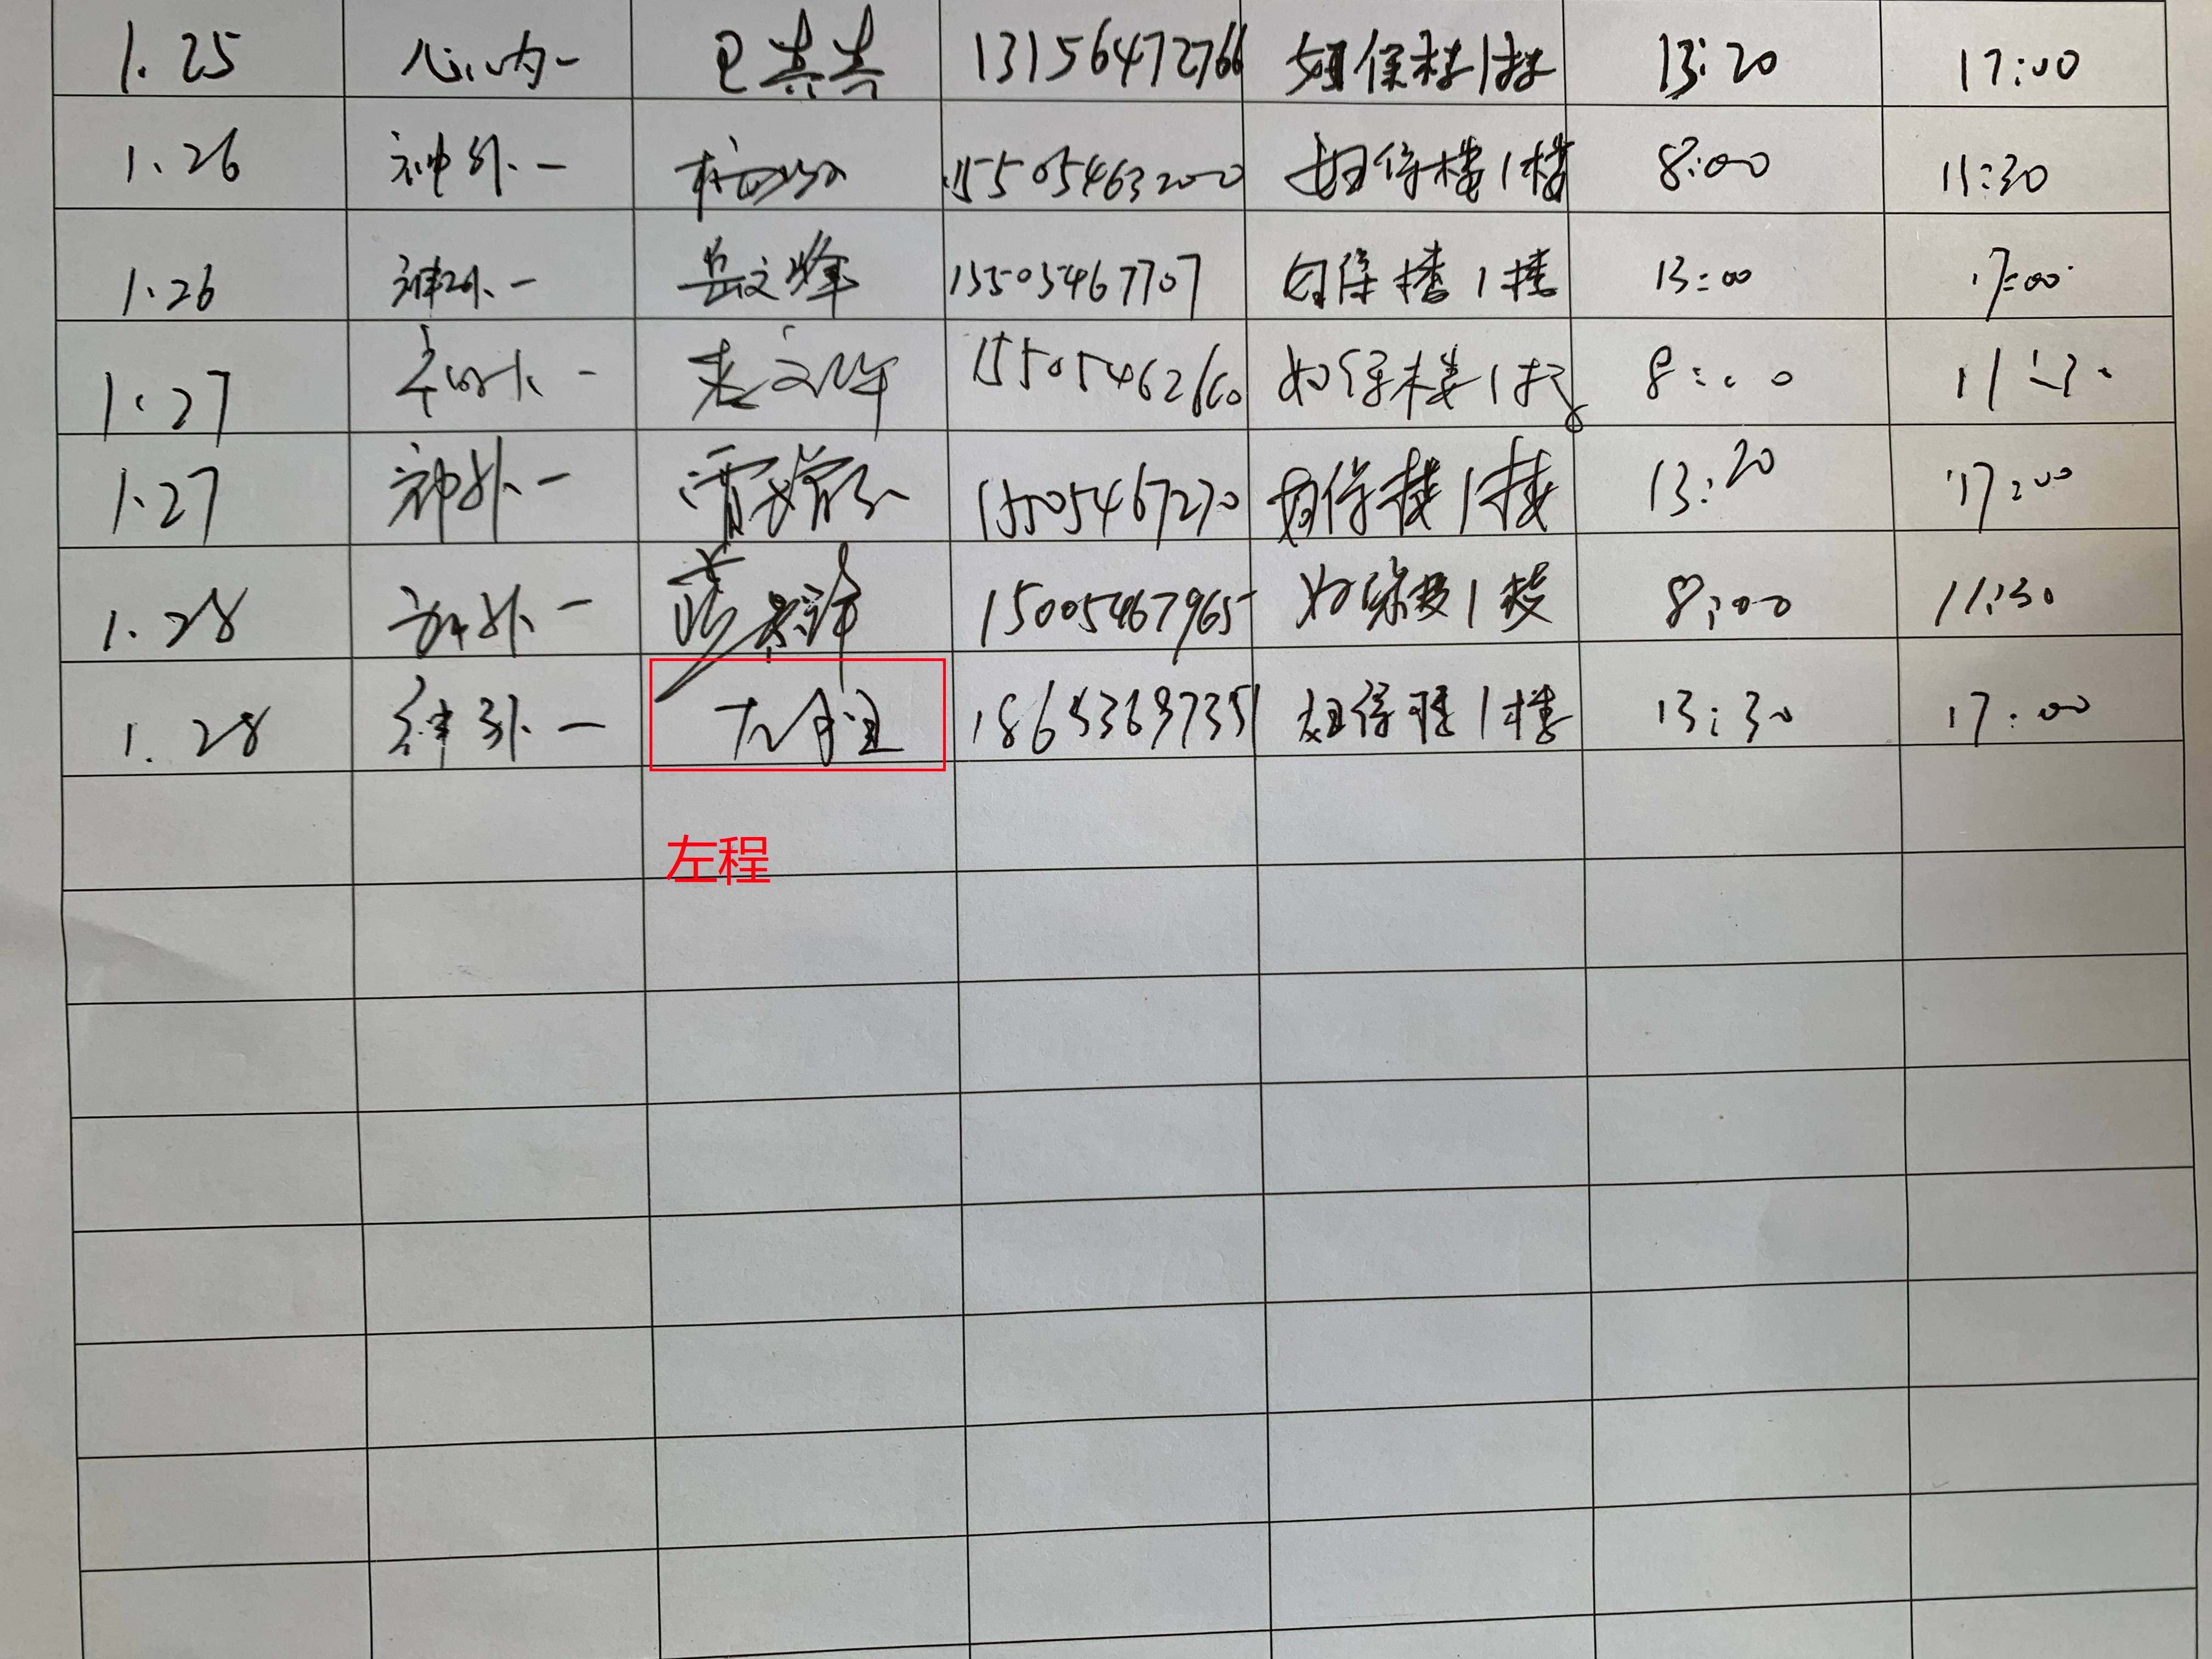 1.25 心内一 巴真真 13156472766 妇保楼1楼 13:20 17:00
1.26 神外一 15505463200 妇保楼1楼 8:00 11:30
1.26 神外一 岳文峰 15505467707 妇保楼1楼 13:00 17:00
1.27 神外一 15505462660 妇保楼1楼 8:00 11:30
1.27 神外一 15505467270 妇保楼1楼 13:20 17:00
1.28 神外一 15005467965 妇保楼1楼 8:00 11:30
1.28 神外一 左程 18653697351 妇保楼1楼 13:30 17:00
左程